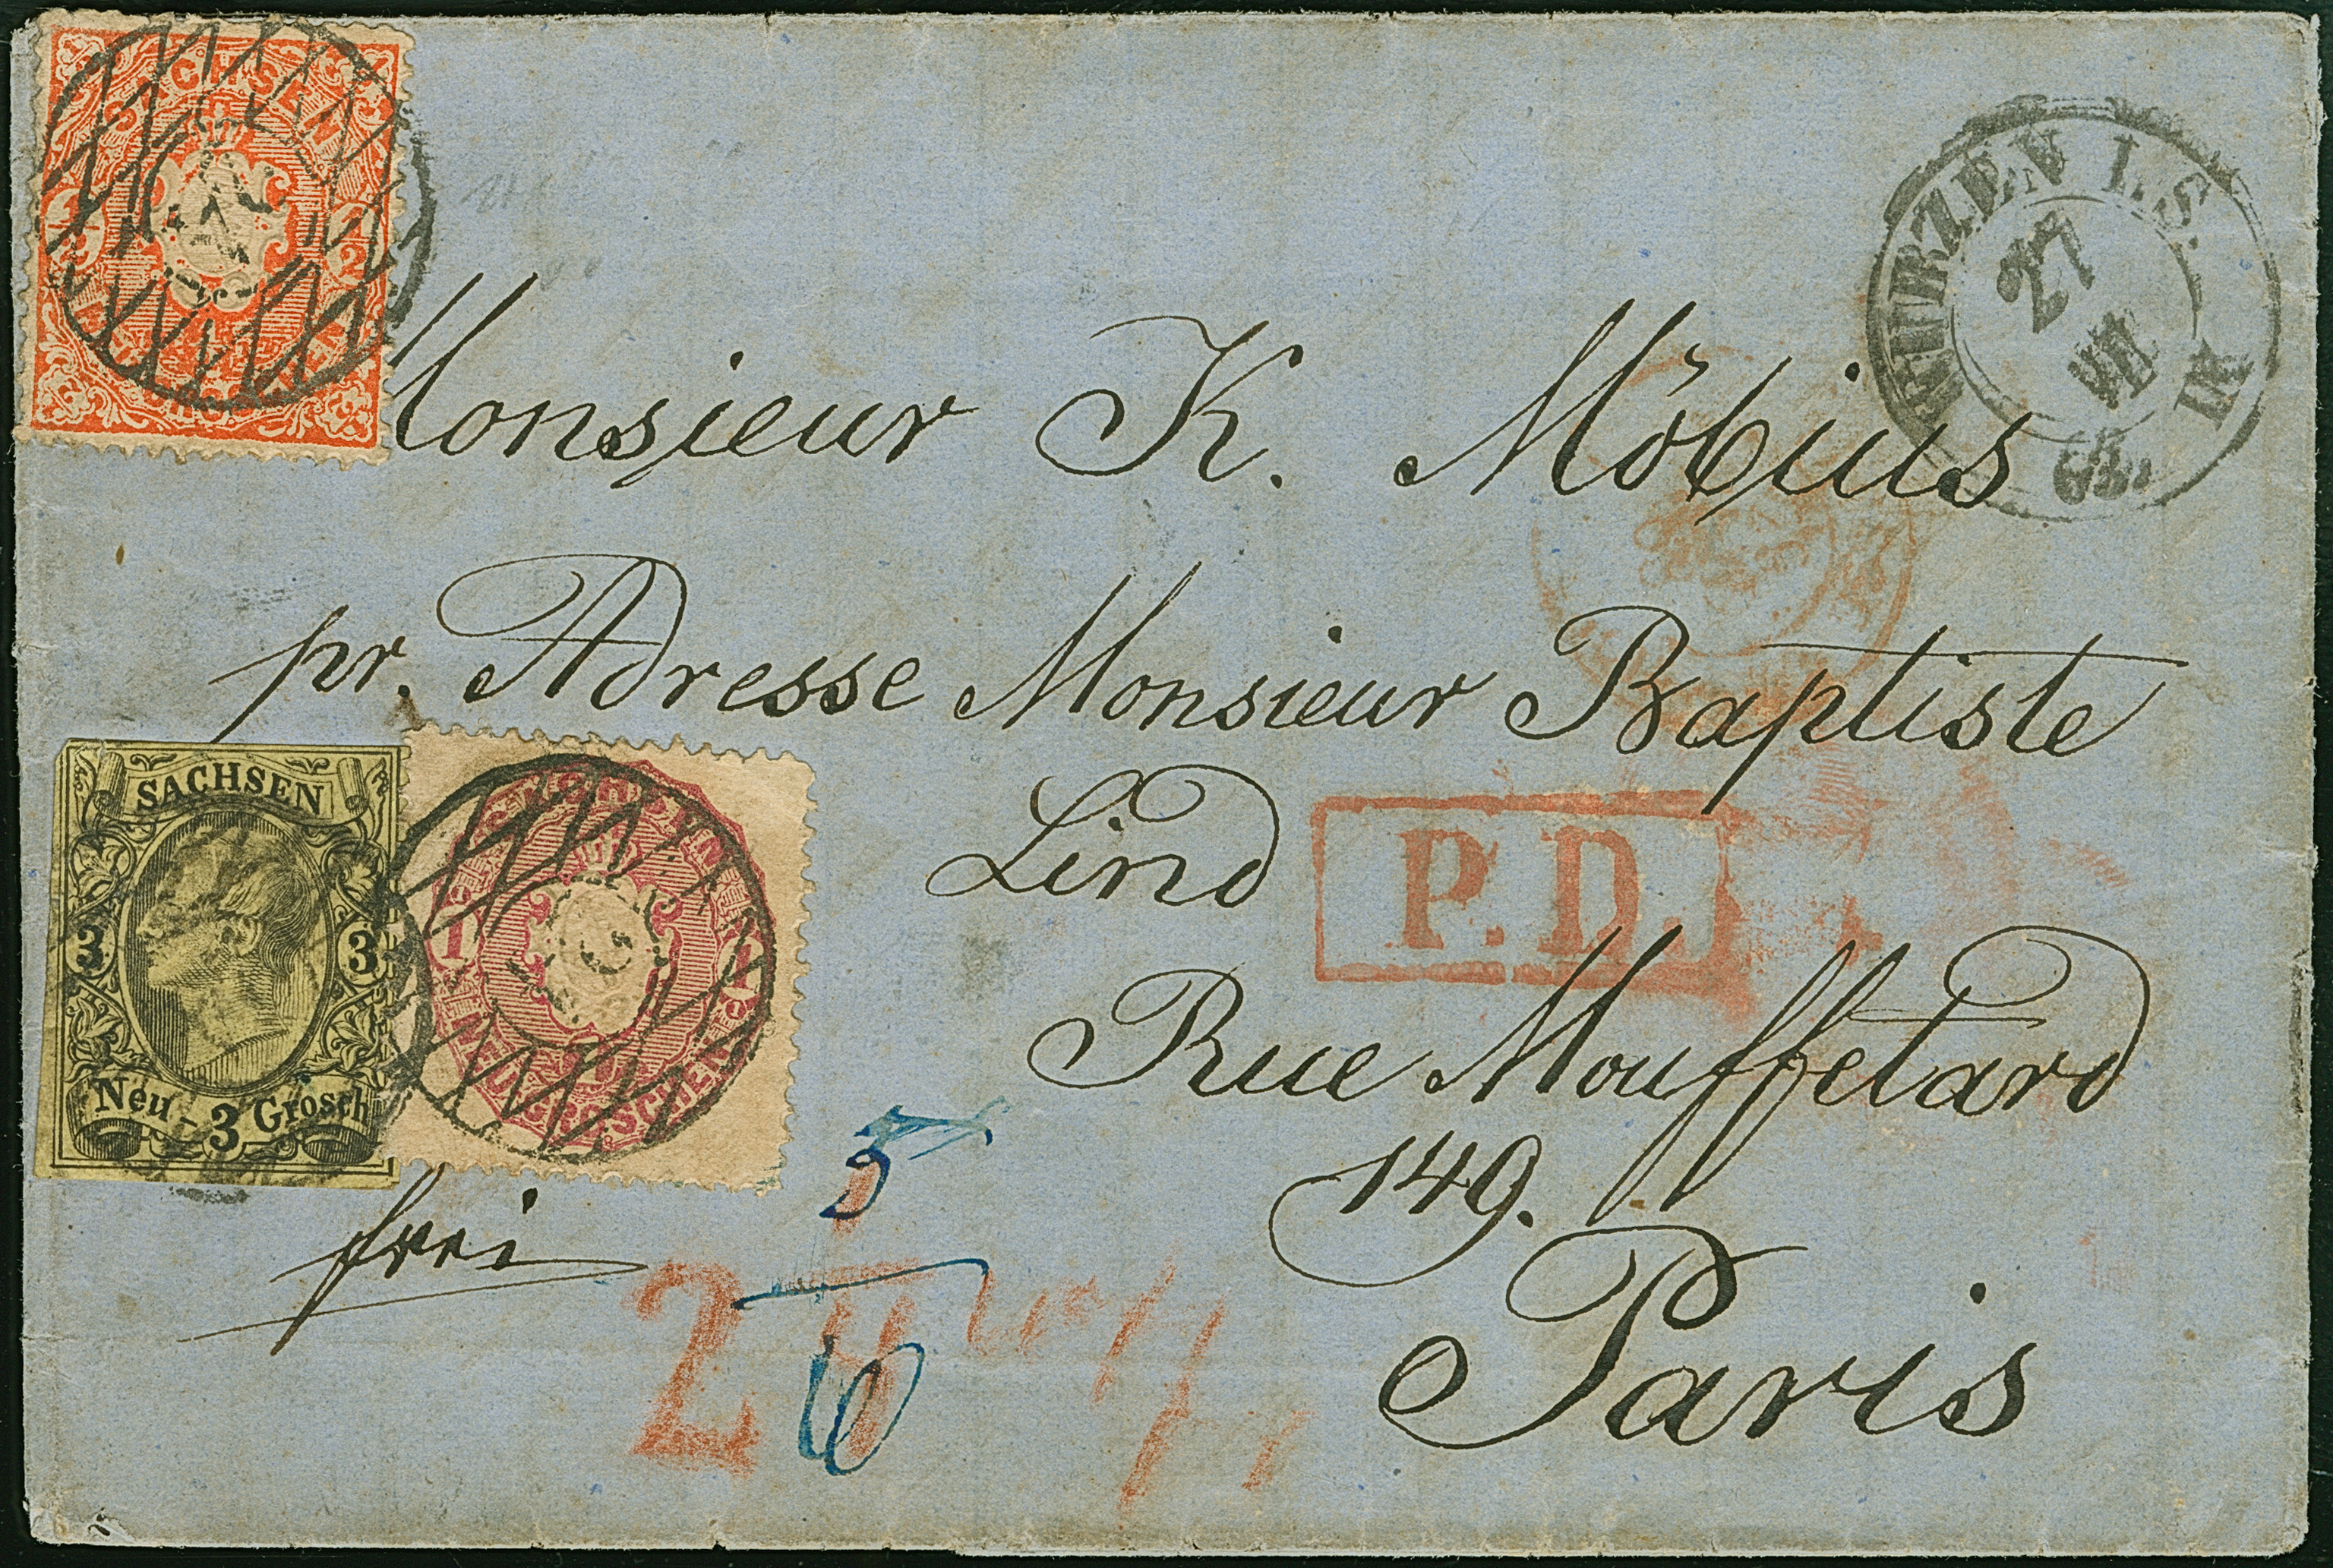 SACHSEN
1/2
Monsieur K. Möbius
WURZEN I. S.
27
pr. Adresse Monsieur Baptiste
Lind
P.D.
Rue Mouffetard
149.
Paris
SACHSEN
3 3
Neu- 3 Grosch
1
NEUGROSCHEN
frei
5
6
2